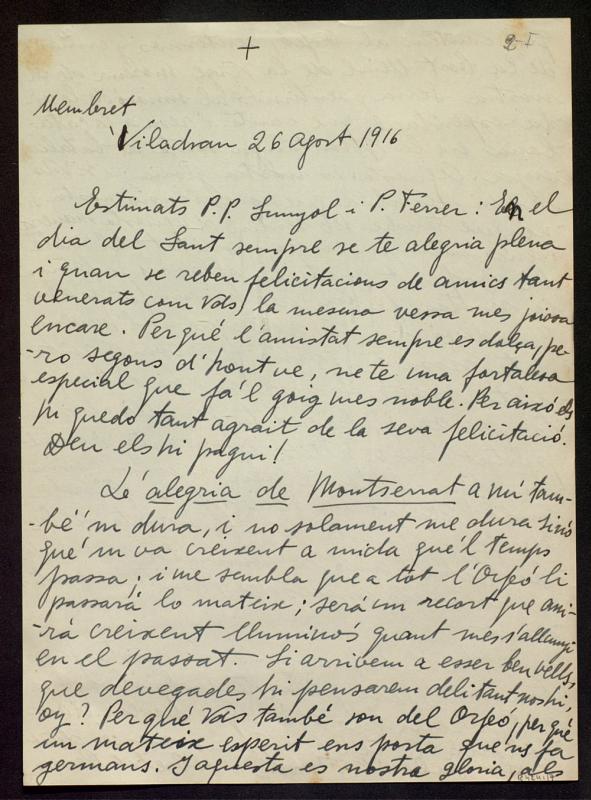 +
2-I
Membret
Viladrau 26 Agost 1916
Estimats P.P. Sunyol i P. Ferrer: En el
dia del Sant sempre se te alegria plena
i quan se reben felicitacions de amics tant
venerats com Vds, la mesura vessa mes joiosa
encare. Perqué l'amistat sempre es dolça, pe-
-ro segons d'hont ve, ne te una fortalesa
especial que fá'l goig mes noble. Per aixó els
hi quedo tant agrait de la seva felicitació.
Deu els hi pagui!
Lé alegria de Montserrat a mi tam-
-bé'm dura, i no solament me dura sinó
qué'm va creixent a mida qué'l temps
passa; i me sembla que a tot l'Orfeó li
passará lo mateix; será un recort que ani-
-rá creixent lluminós quant mes s'allunyi
en el passat. Si arribem a esser ben vells,
que devegades hi pensarem delitantnoshi,
oy? Perqué Vds també son del Orfeó, perqué
un mateix esperit ens porta qué'ns fa
germans. I aquesta es nostra gloria, a es